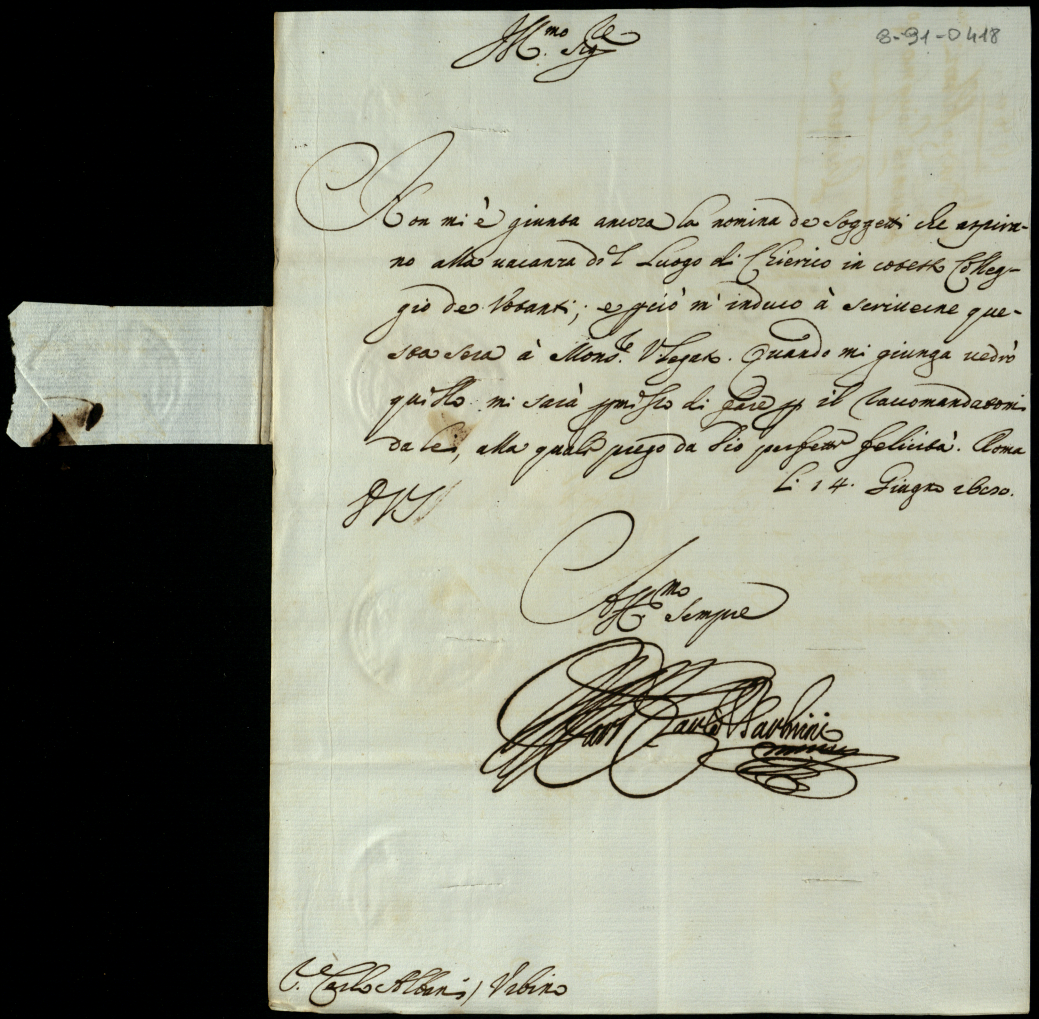 8-91-0418
Ill.mo Sig.re
Non mi è giunta ancora la nomina de Soggetti che aspira-
no alla vacanza del Luogo di Chierico in cotesto Colleg-
gio de Votanti; e perciò m' induco à scriverne que-
sta sera à Mons.r Vlegato. Quando mi giunga vedrò
quello mi sarà di fare p le Raccomandationi
da lei, alla quale prego da Dio perfetta felicità. Roma
li 14. Giugno
Aff.mo
Sempre
Carlo Barberini
Carlo Albani / Urbino